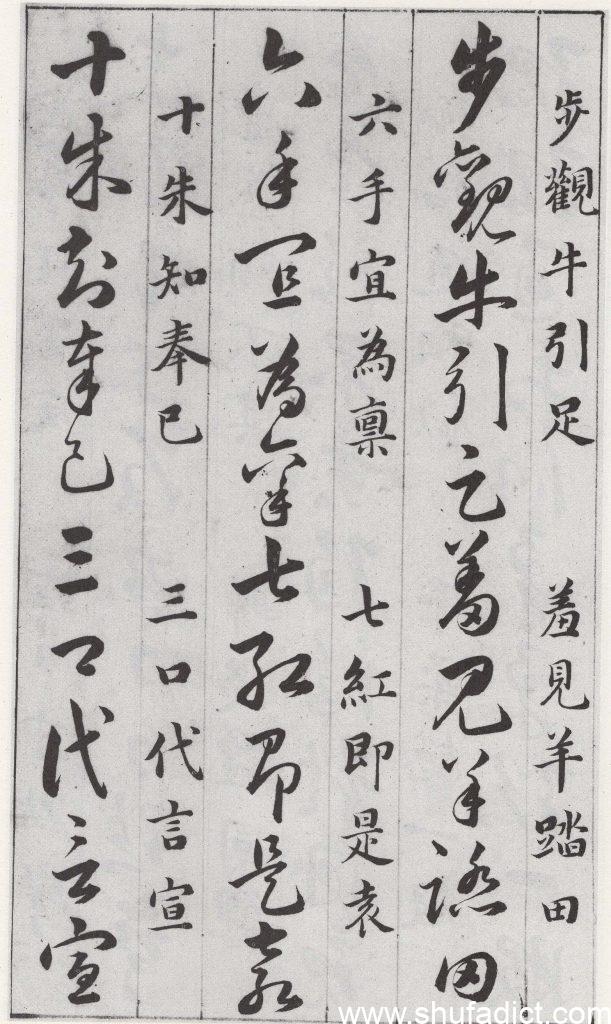 步觀牛引足 羞見羊踏田
步觀牛引足羞見羊踏田
六手宜為稟 七紅即是袁
六手宜為稟七紅即是袁
十朱知奉已 三口代言宣
十朱知奉已三口代言宣
www.shufadict.com